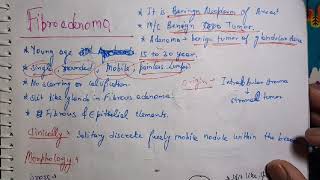 Fibroadenoma
* It is Benign Neoplasm of Breast
* M/c Benign Tumor
* Adenoma → benign tumor of glandular
* Young age 15 to 30 year
* Single, rounded, Mobile, Painless lump
* No scarring or calcification.
Origin → Intralobular stroma
↓
stromal tumor
* Slit like glands in Fibrous adenoma.
* Fibrous & Epithelial elements.
Clinically → Solitary discrete freely mobile nodule within the breast
Morphology →
Gross →